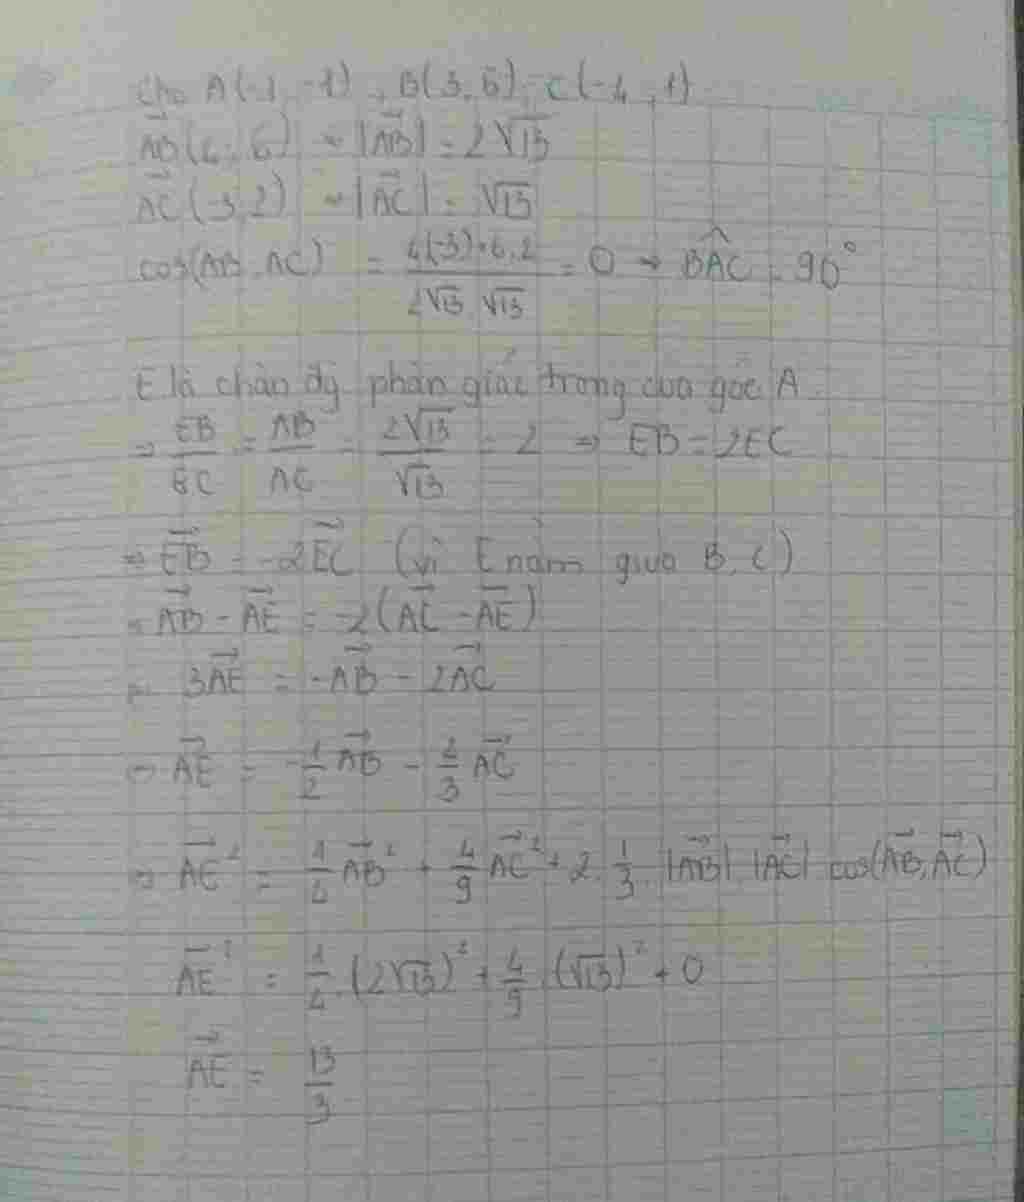 Cho A(-1, -1), B(3, 5), C(-4, 1)
→AB(4; 6) → |→AB| = 2√13
→AC(-3, 2) → |→AC| = √13
cos(AB, AC) = (4(-3)+6.2)/(2√13.√13) = 0 → BAC = 90°
E là chân đg phân giác trong của góc A.
⇒ EB/EC = AB/AC = 2√13/√13 = 2 ⇒ EB = 2EC
⇒ →EB = -2→EC (vì E nằm giữa B, C)
→AB - →AE = -2(→AC - →AE)
3→AE = -→AB - 2→AC
→AE = -1/2 →AB - 2/3 →AC
⇒ →AE² = 1/4 →AB² + 4/9 →AC² + 2.1/3.|→AB|.|→AC| cos(→AB, →AC)
→AE² = 1/4.(2√13)² + 4/9.(√13)² + 0
→AE = 13/3